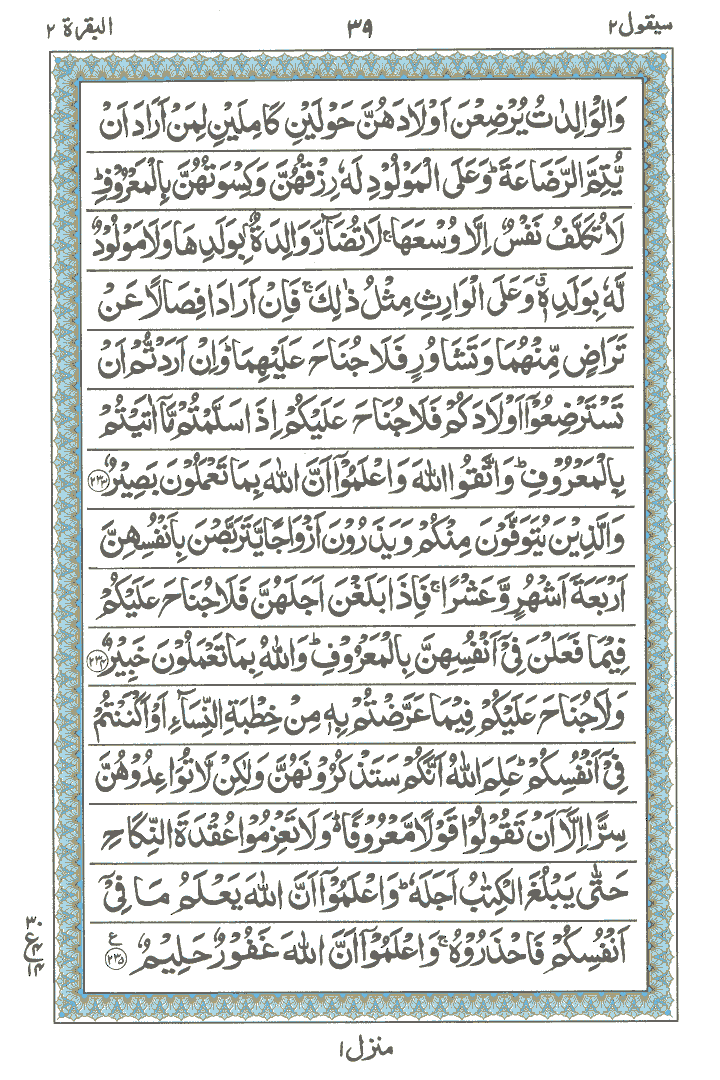 سیقول ٢
٣٩
البقرة ٢
وَالْوٰلِدٰتُ يُرْضِعْنَ اَوْلَادَهُنَّ حَوْلَيْنِ كَامِلَيْنِ لِمَنْ اَرَادَ اَنْ
يُّتِمَّ الرَّضَاعَةَ ؕ وَعَلَى الْمَوْلُوْدِ لَهٗ رِزْقُهُنَّ وَكِسْوَتُهُنَّ بِالْمَعْرُوْفِ ؕ
لَا تُكَلَّفُ نَفْسٌ اِلَّا وُسْعَهَا ۚ لَا تُضَآرَّ وَالِدَةٌۢ بِوَلَدِهَا وَلَا مَوْلُوْدٌ
لَّهٗ بِوَلَدِهٖ ۗ وَعَلَى الْوَارِثِ مِثْلُ ذٰلِكَ ۚ فَاِنْ اَرَادَا فِصَالًا عَنْ
تَرَاضٍ مِّنْهُمَا وَتَشَاوُرٍ فَلَا جُنَاحَ عَلَيْهِمَا ؕ وَاِنْ اَرَدْتُّمْ اَنْ
تَسْتَرْضِعُوْٓا اَوْلَادَكُمْ فَلَا جُنَاحَ عَلَيْكُمْ اِذَا سَلَّمْتُمْ مَّآ اٰتَيْتُمْ
بِالْمَعْرُوْفِ ؕ وَاتَّقُوا اللهَ وَاعْلَمُوْٓا اَنَّ اللهَ بِمَا تَعْمَلُوْنَ بَصِيْرٌ ﴿٢٣٣﴾
وَالَّذِيْنَ يُتَوَفَّوْنَ مِنْكُمْ وَيَذَرُوْنَ اَزْوَاجًا يَّتَرَبَّصْنَ بِاَنْفُسِهِنَّ
اَرْبَعَةَ اَشْهُرٍ وَّعَشْرًا ۚ فَاِذَا بَلَغْنَ اَجَلَهُنَّ فَلَا جُنَاحَ عَلَيْكُمْ
فِيْمَا فَعَلْنَ فِيْٓ اَنْفُسِهِنَّ بِالْمَعْرُوْفِ ؕ وَاللهُ بِمَا تَعْمَلُوْنَ خَبِيْرٌ ﴿٢٣٤﴾
وَلَا جُنَاحَ عَلَيْكُمْ فِيْمَا عَرَّضْتُمْ بِهٖ مِنْ خِطْبَةِ النِّسَآءِ اَوْ اَكْنَنْتُمْ
فِيْٓ اَنْفُسِكُمْ ؕ عَلِمَ اللهُ اَنَّكُمْ سَتَذْكُرُوْنَهُنَّ وَلٰكِنْ لَّا تُوَاعِدُوْهُنَّ
سِرًّا اِلَّآ اَنْ تَقُوْلُوْا قَوْلًا مَّعْرُوْفًا ؕ۬ وَلَا تَعْزِمُوْا عُقْدَةَ النِّكَاحِ
حَتّٰى يَبْلُغَ الْكِتٰبُ اَجَلَهٗ ؕ وَاعْلَمُوْٓا اَنَّ اللهَ يَعْلَمُ مَا فِيْٓ
اَنْفُسِكُمْ فَاحْذَرُوْهُ ۚ وَاعْلَمُوْٓا اَنَّ اللهَ غَفُوْرٌ حَلِيْمٌ ﴿٢٣٥﴾ ع
٣٠
ع
٤
١٤
منزل ١